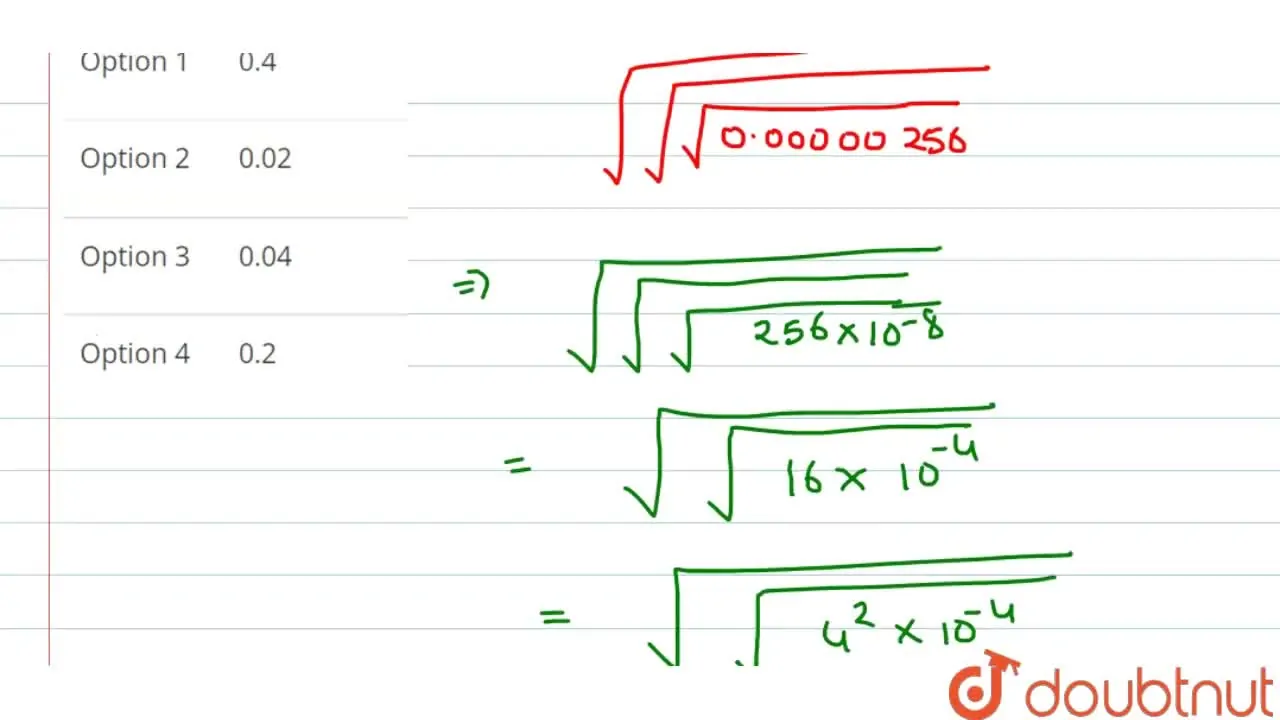 Option 1 0.4
Option 2 0.02
Option 3 0.04
Option 4 0.2
√√√0.00000256
⇒ √√√256×10⁻⁸
= √√16×10⁻⁴
= √√4²×10⁻⁴
doubtnut